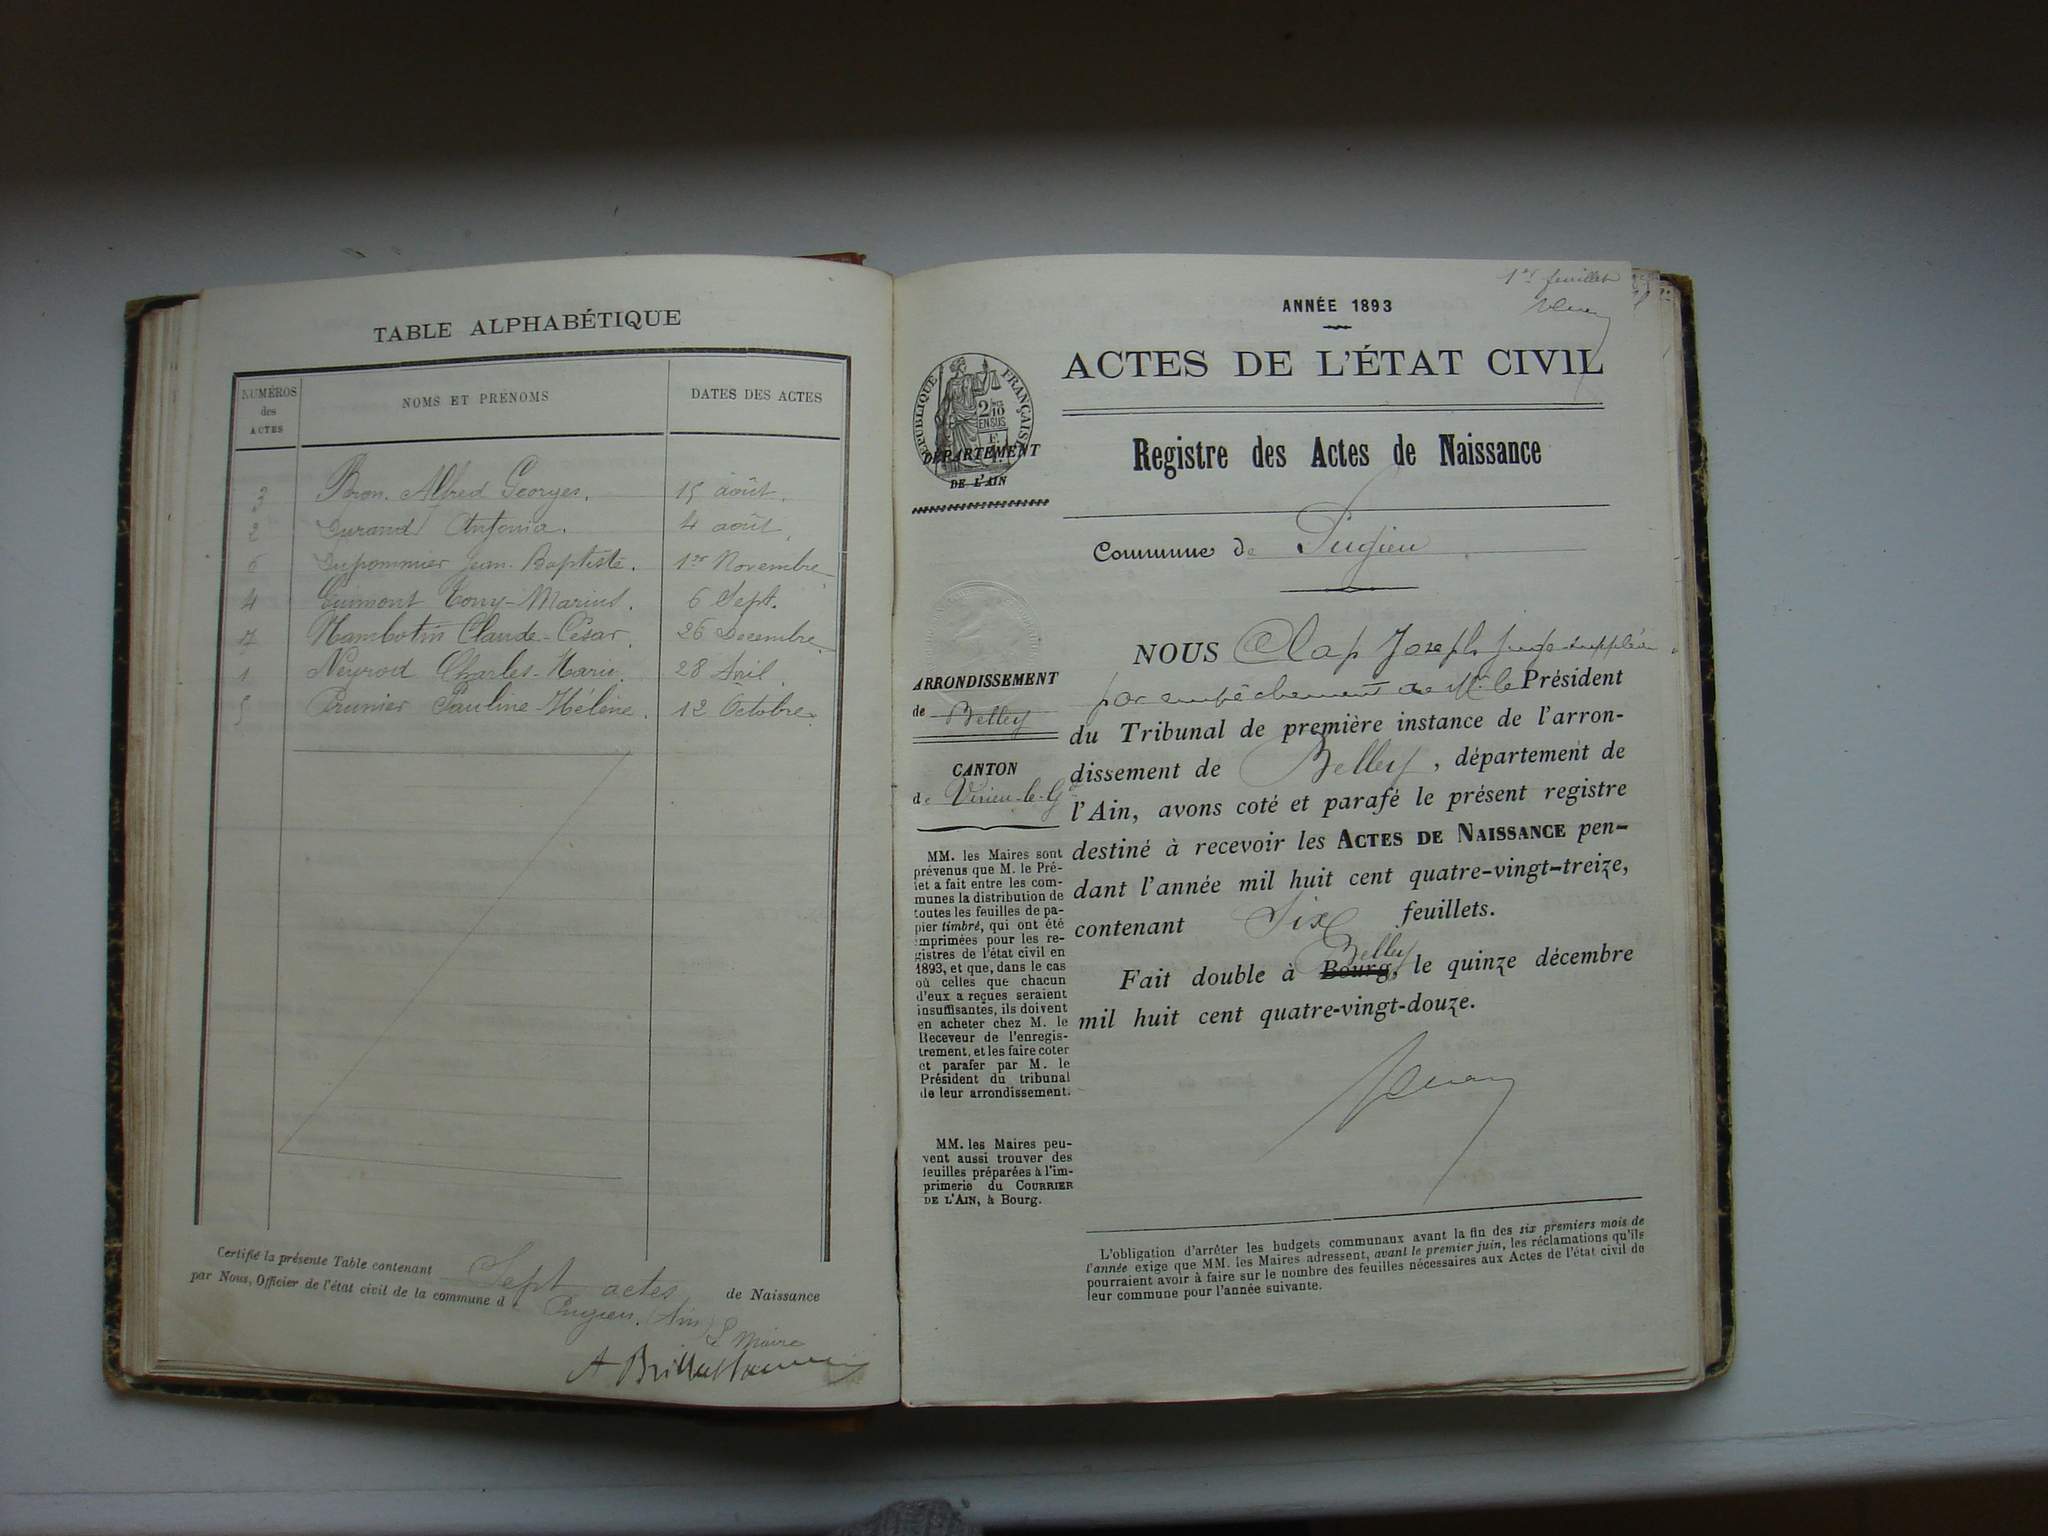 TABLE ALPHABÉTIQUE
NUMÉROS des ACTES
NOMS ET PRÉNOMS
DATES DES ACTES
3 Alfred Georges. 15 août.
2 Durand Antonia. 4 août.
6 Dupommier Jean-Baptiste. 1er Novembre
4 Guimont Tony-Marius. 6 Sept.
7 Claude-César. 26 Decembre
1 Neyrod Charles-Marie. 28 Avril.
5 Prunier Pauline Hélène. 12 Octobre.
Certifié la présente Table contenant Sept actes de Naissance
par Nous, Officier de l'état civil de la commune d Pugieu. (Ain)
Le Maire
1er feuillet
ANNÉE 1893
ACTES DE L'ÉTAT CIVIL
RÉPUBLIQUE FRANÇAISE
2/10
EN SUS
DÉPARTEMENT
DE L'AIN
Registre des Actes de Naissance
Commune de Pugieu
ARRONDISSEMENT
de Belley
CANTON
de Virieu-le-Gd
MM. les Maires sont
prévenus que M. le Pré-
fet a fait entre les com-
munes la distribution de
toutes les feuilles de pa-
pier timbré, qui ont été
imprimées pour les re-
gistres de l'état civil en
1893, et que, dans le cas
où celles que chacun
d'eux a reçues seraient
insuffisantes, ils doivent
en acheter chez M. le
Receveur de l'enregis-
trement, et les faire coter
et parafer par M. le
Président du tribunal
de leur arrondissement.
MM. les Maires peu-
vent aussi trouver des
feuilles préparées à l'im-
primerie du COURRIER
DE L'AIN, à Bourg.
NOUS Clap Joseph Juge suppléan
par empêchement de Mr le Président
du Tribunal de première instance de l'arron-
dissement de Belley, département de
l'Ain, avons coté et parafé le présent registre
destiné à recevoir les ACTES DE NAISSANCE pen-
dant l'année mil huit cent quatre-vingt-treize,
contenant Six feuillets.
Belley
Fait double à Bourg, le quinze décembre
mil huit cent quatre-vingt-douze.
L'obligation d'arrêter les budgets communaux avant la fin des six premiers mois de
l'année exige que MM. les Maires adressent, avant le premier juin, les réclamations qu'ils
pourraient avoir à faire sur le nombre des feuilles nécessaires aux Actes de l'état civil de
leur commune pour l'année suivante.